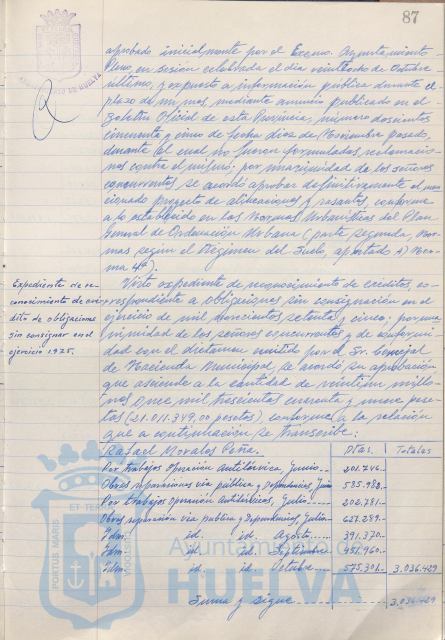 87
aprobado inicialmente por el Excmo. Ayuntamiento
Pleno, en sesión celebrada el día veintiocho de Octubre
último, y expuesto a información pública durante el
plazo de un mes, mediante anuncio publicado en el
Boletín Oficial de esta Provincia, número doscientos
cincuenta y cinco de fecha diez de Noviembre pasado,
durante el cual no fueron formuladas reclamacio-
nes contra el mismo: por unanimidad de los señores
concurrentes se acordó aprobar definitivamente el men-
cionado proyecto de alineaciones y rasantes, conforme
a lo establecido en las Normas Urbanísticas del Plan
General de Ordenación Urbana (parte segunda, Nor-
mas según el Régimen del Suelo, apartado A) Nor-
ma 4ª).
Expediente de re-
conocimiento de cré-
dito de obligaciones
sin consignar en el
ejercicio 1975.
Visto expediente de reconocimiento de créditos, co-
rrespondiente a obligaciones sin consignación en el
ejercicio de mil novecientos setenta y cinco: por una-
nimidad de los señores concurrentes y de conformi-
dad con el dictamen emitido por el Sr. Concejal
de Hacienda Municipal, se acordó su aprobación
que asciende a la cantidad de veintiún millo-
nes once mil trescientas cuarenta y nueve pese-
tas (21.011.349,00 pesetas) conforme a la relación
que a continuación se transcribe:
Rafael Morales Peña. Ptas. Totales
Por trabajos Operación Antilárvica, Junio 201.746.-
Obras reparaciones vía pública y Dependencias, Junio 585.988.-
Por trabajos Operación Antilárvicos, Julio 202.781.-
Obras reparación vía publica y Dependencias, Julio 627.289.-
Idm. id. id. Agosto 391.370.-
Idm. id. id. Septiembre 451.960.-
Idm. id. id. Octubre 575.301.- 3.036.429
Suma y sigue 3.036.429
PORTUS MARIS
ET TERRAE
Ayuntamiento
HUELVA